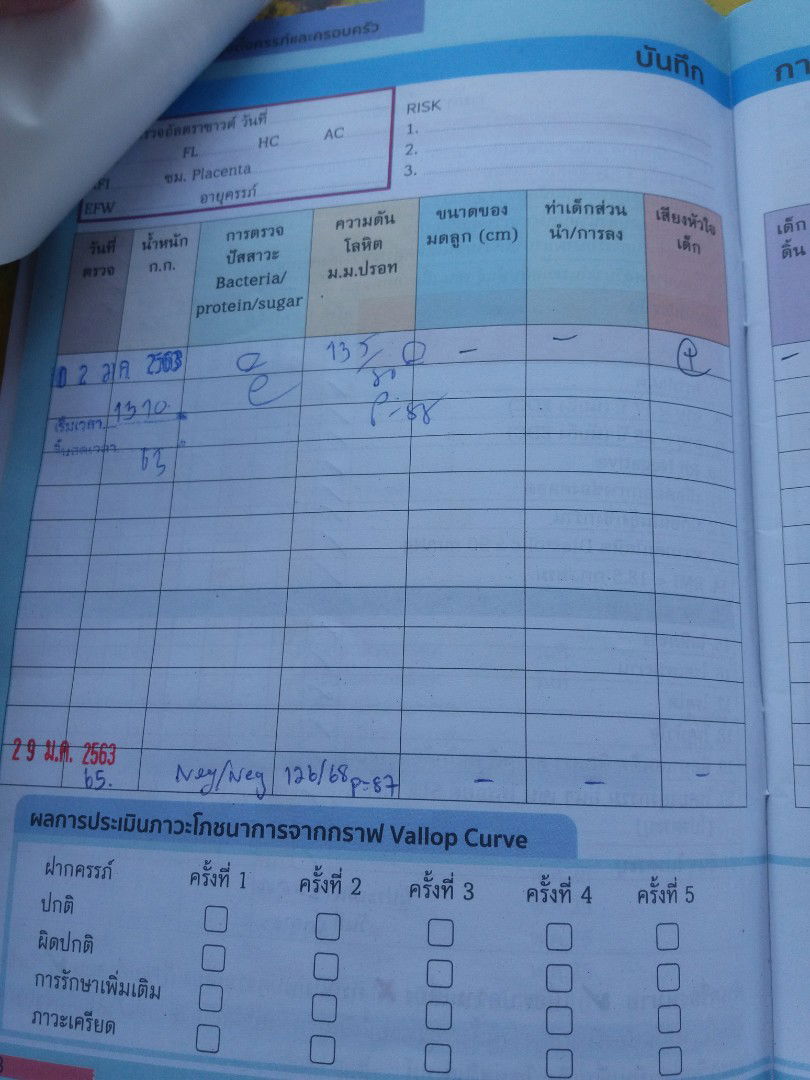 และครอบครัว
บันทึก
กา
ตรวจอัลตราซาวด์ วันที่
FL HC AC
ซม. Placenta
EFW อายุครรภ์
RISK
1.
2.
3.
วันที่ตรวจ
น้ำหนัก ก.ก.
การตรวจปัสสาวะ Bacteria/protein/sugar
ความดันโลหิต ม.ม.ปรอท
ขนาดของมดลูก (cm)
ท่าเด็กส่วนนำ/การลง
เสียงหัวใจเด็ก
เด็กดิ้น
0 2 ม.ค. 2563 135/80 - - -
เริ่มเวลา 1310 P=88
สิ้นสุดเวลา
63
29 ม.ค. 2563
65. Neg/Neg 126/68 P=87 - - -
ผลการประเมินภาวะโภชนาการจากกราฟ Vallop Curve
ฝากครรภ์ ครั้งที่ 1 ครั้งที่ 2 ครั้งที่ 3 ครั้งที่ 4 ครั้งที่ 5
ปกติ
ผิดปกติ
การรักษาเพิ่มเติม
ภาวะเครียด